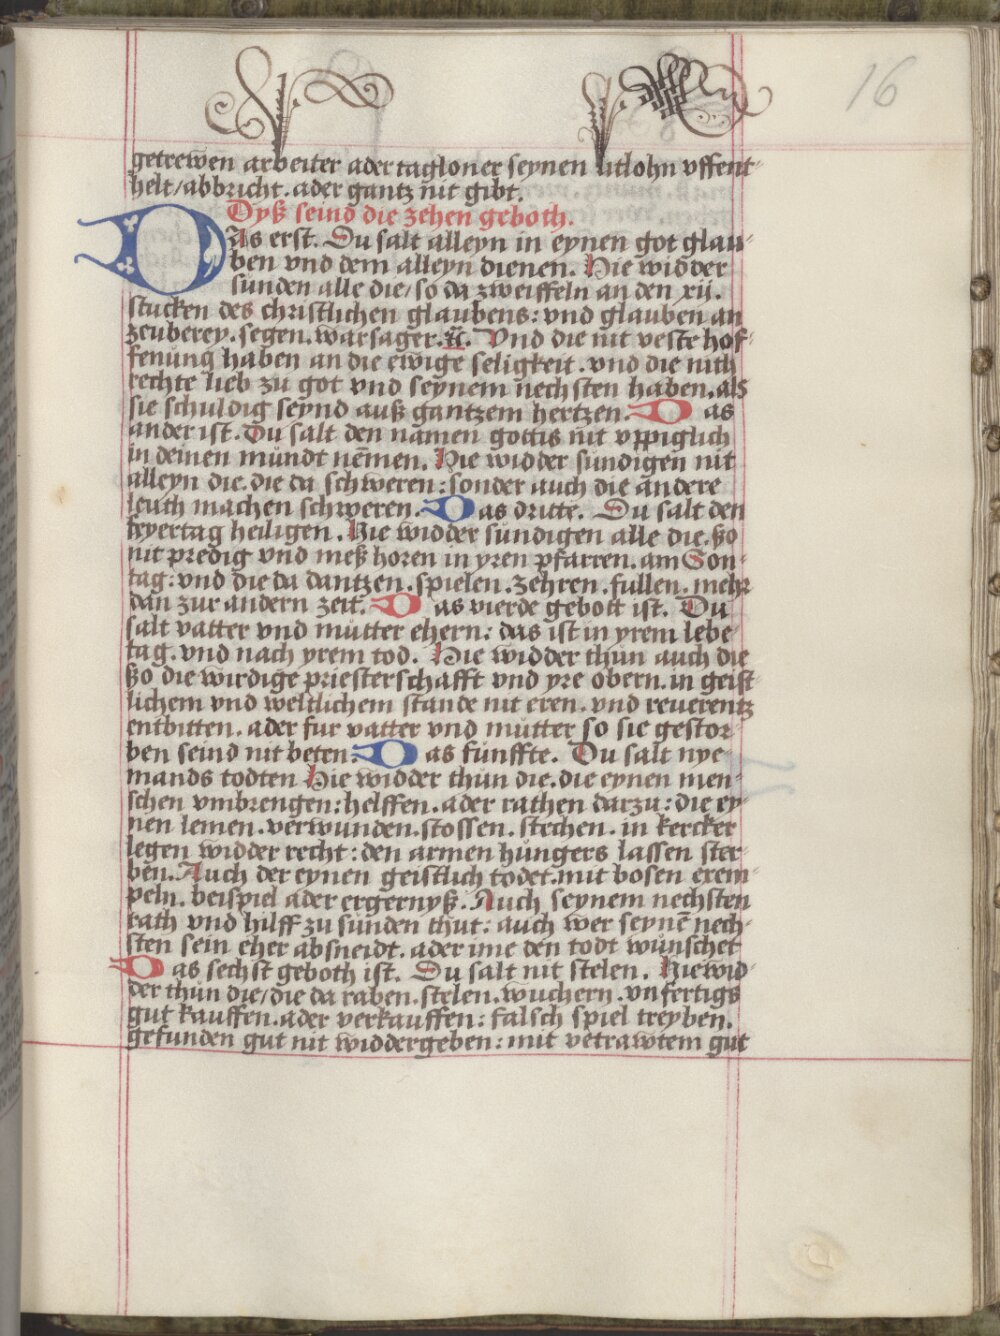 16
getrewen arbeiter ader tagloner seynen litlohn vffent-
helt/abbricht. ader gantz nit gibt.
Dyß seind die zehen geboth.
DAs erst. Du salt alleyn in eynen got glau-
ben vnd dem alleyn dienen. Hie widder
sunden alle die/so da zweiffeln an den xij.
stucken des christlichen glaubens: vnd glauben an
zeuberey. segen. warsager. ⁊c̃. Vnd die nit veste hof-
fenung haben an die ewige seligkeit. vnd die nith
rechte lieb zu got vnd seynem nechsten haben. als
sie schuldig seynd auß gantzem hertzen. D as
ander ist. Du salt den namen gottis nit vppiglich
in deinen mundt nemen. Hie widder sundigen nit
alleyn die. die da schweren: sonder auch die andere
leuth machen schweren. D as dritte. Du salt den
feyertag heiligen. Hie widder sundigen alle die. ßo
nit predig vnd meß horen in yren pfarren. am Son-
tag: vnd die da dantzen. spielen. zehren. fullen. mehr
dan zur andern zeit. D as vierde gebott ist. Du
salt vatter vnd mutter ehern: das ist in yrem lebe-
tag. vnd nach yrem tod. Hie widder thun auch die
ßo die wirdige priesterschafft vnd yre obern. in geist-
lichem vnd weltlichem stande nit eren. vnd reuerentz
entbitten. ader fur vatter vnd mutter so sie gestor-
ben seind nit beten. D as funffte. Du salt nye-
mands todten Hie widder thun die. die eynen men-
schen vmbrengen: helffen. ader rathen darzu: die ey-
nen lemen. verwunden. stossen. stechen. in kercker
legen widder recht: den armen hungers lassen ster-
ben. Auch der eynen geistlich todet. mit bosen exem-
peln. beispiel ader ergernyß. Auch seynem nechsten
rath vnd hilff zu sunden thut: auch wer seynē nech-
sten sein eher absneidt. ader ime den todt wunschet
D as sechst geboth ist. Du salt nit stelen. Hie wid-
der thun die/die da raben. stelen. wuchern. vnfertigs
gut kauffen. ader verkauffen: falsch spiel treyben.
gefunden gut nit widdergeben: mit vetrawtem gut